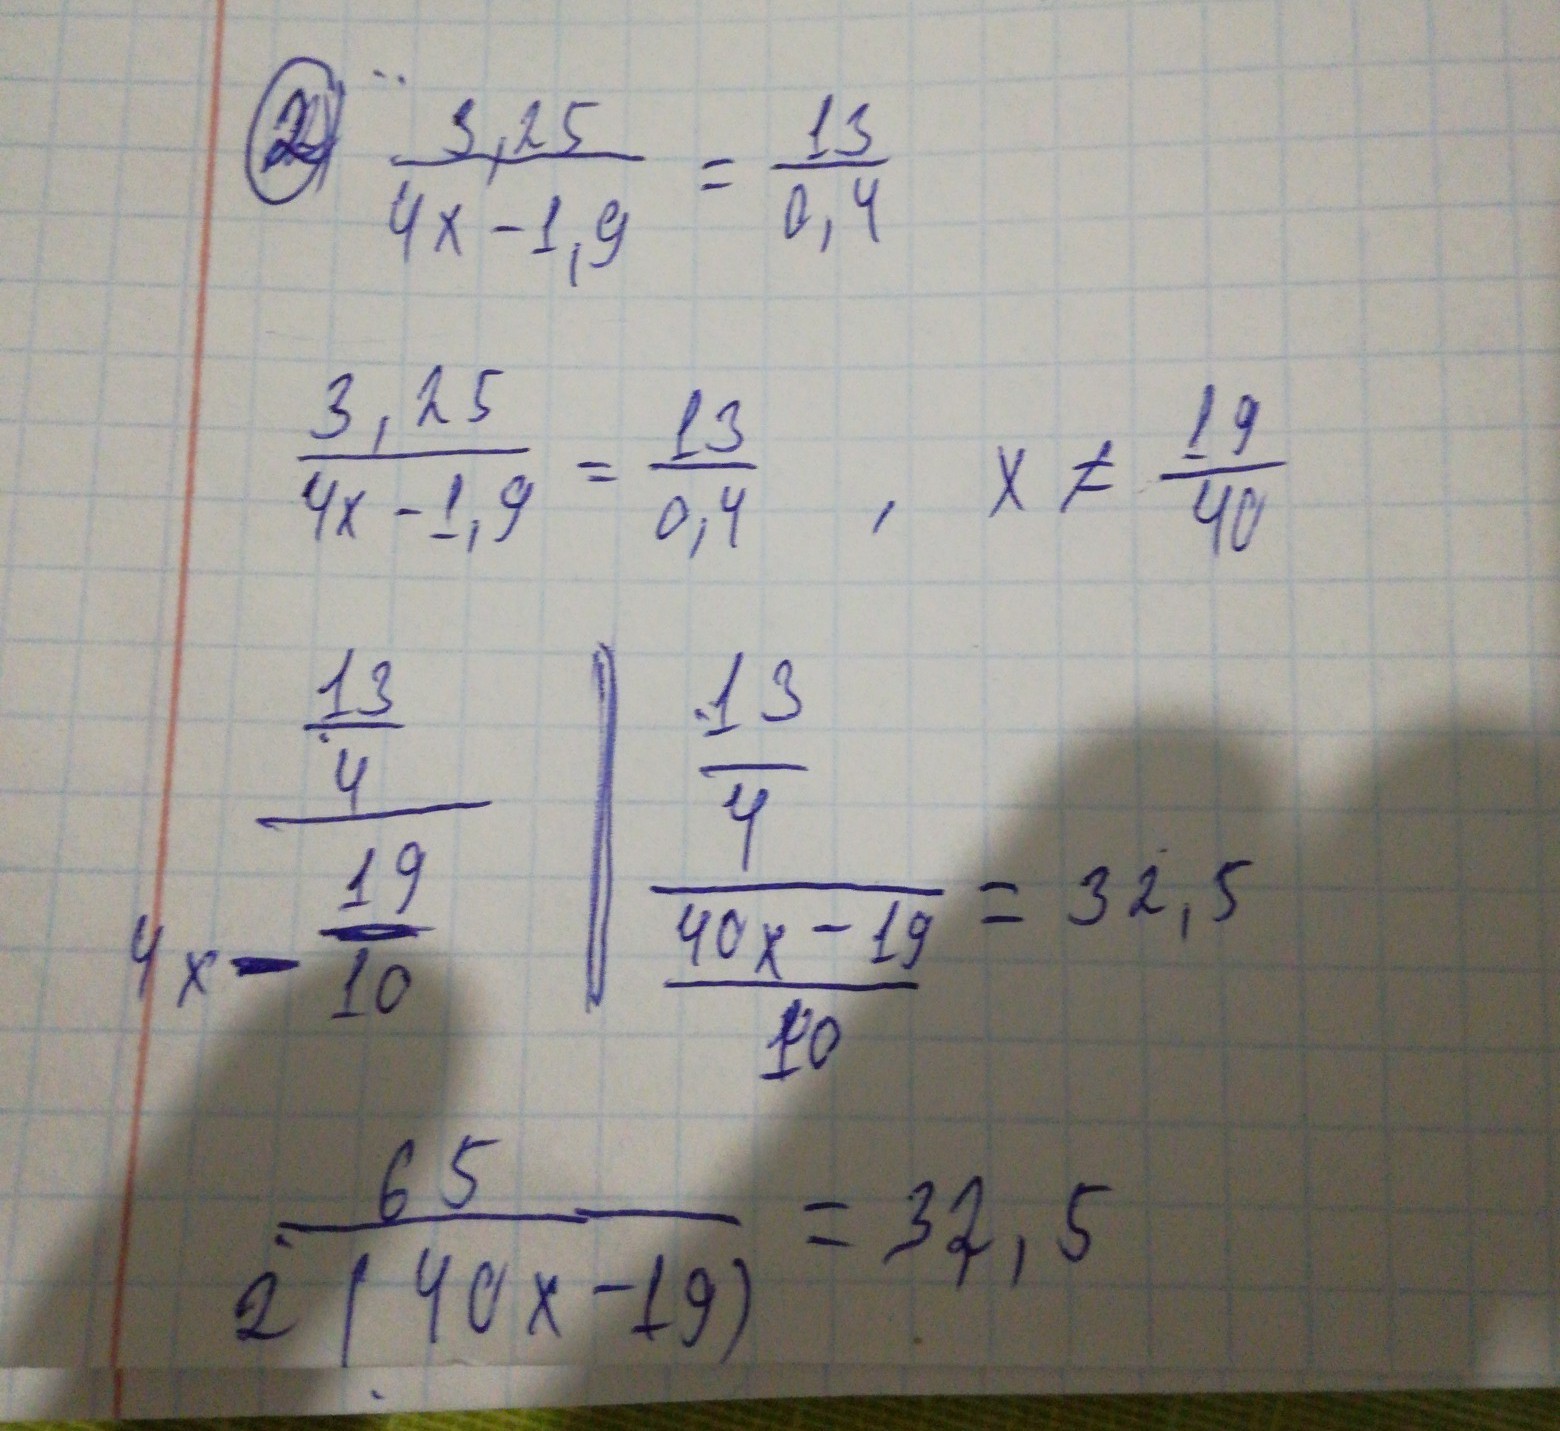 ② 3,25 / 4x - 1,9 = 13 / 0,4
3,25 / 4x - 1,9 = 13 / 0,4 , x ≠ 19 / 40
13/4 / 4x - 19/10 || 13/4 / 40x - 19/10 = 32,5
65 / 2(40x - 19) = 32,5